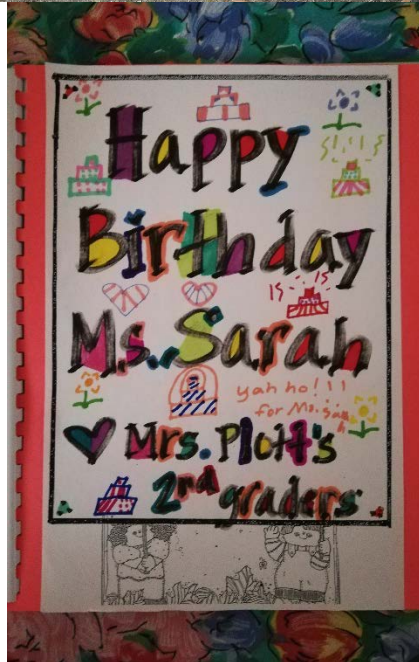 Happy
Birthday
Ms. Sarah
yah ho!!!
for Ms. Sarah
Mrs. Plott's
2nd graders